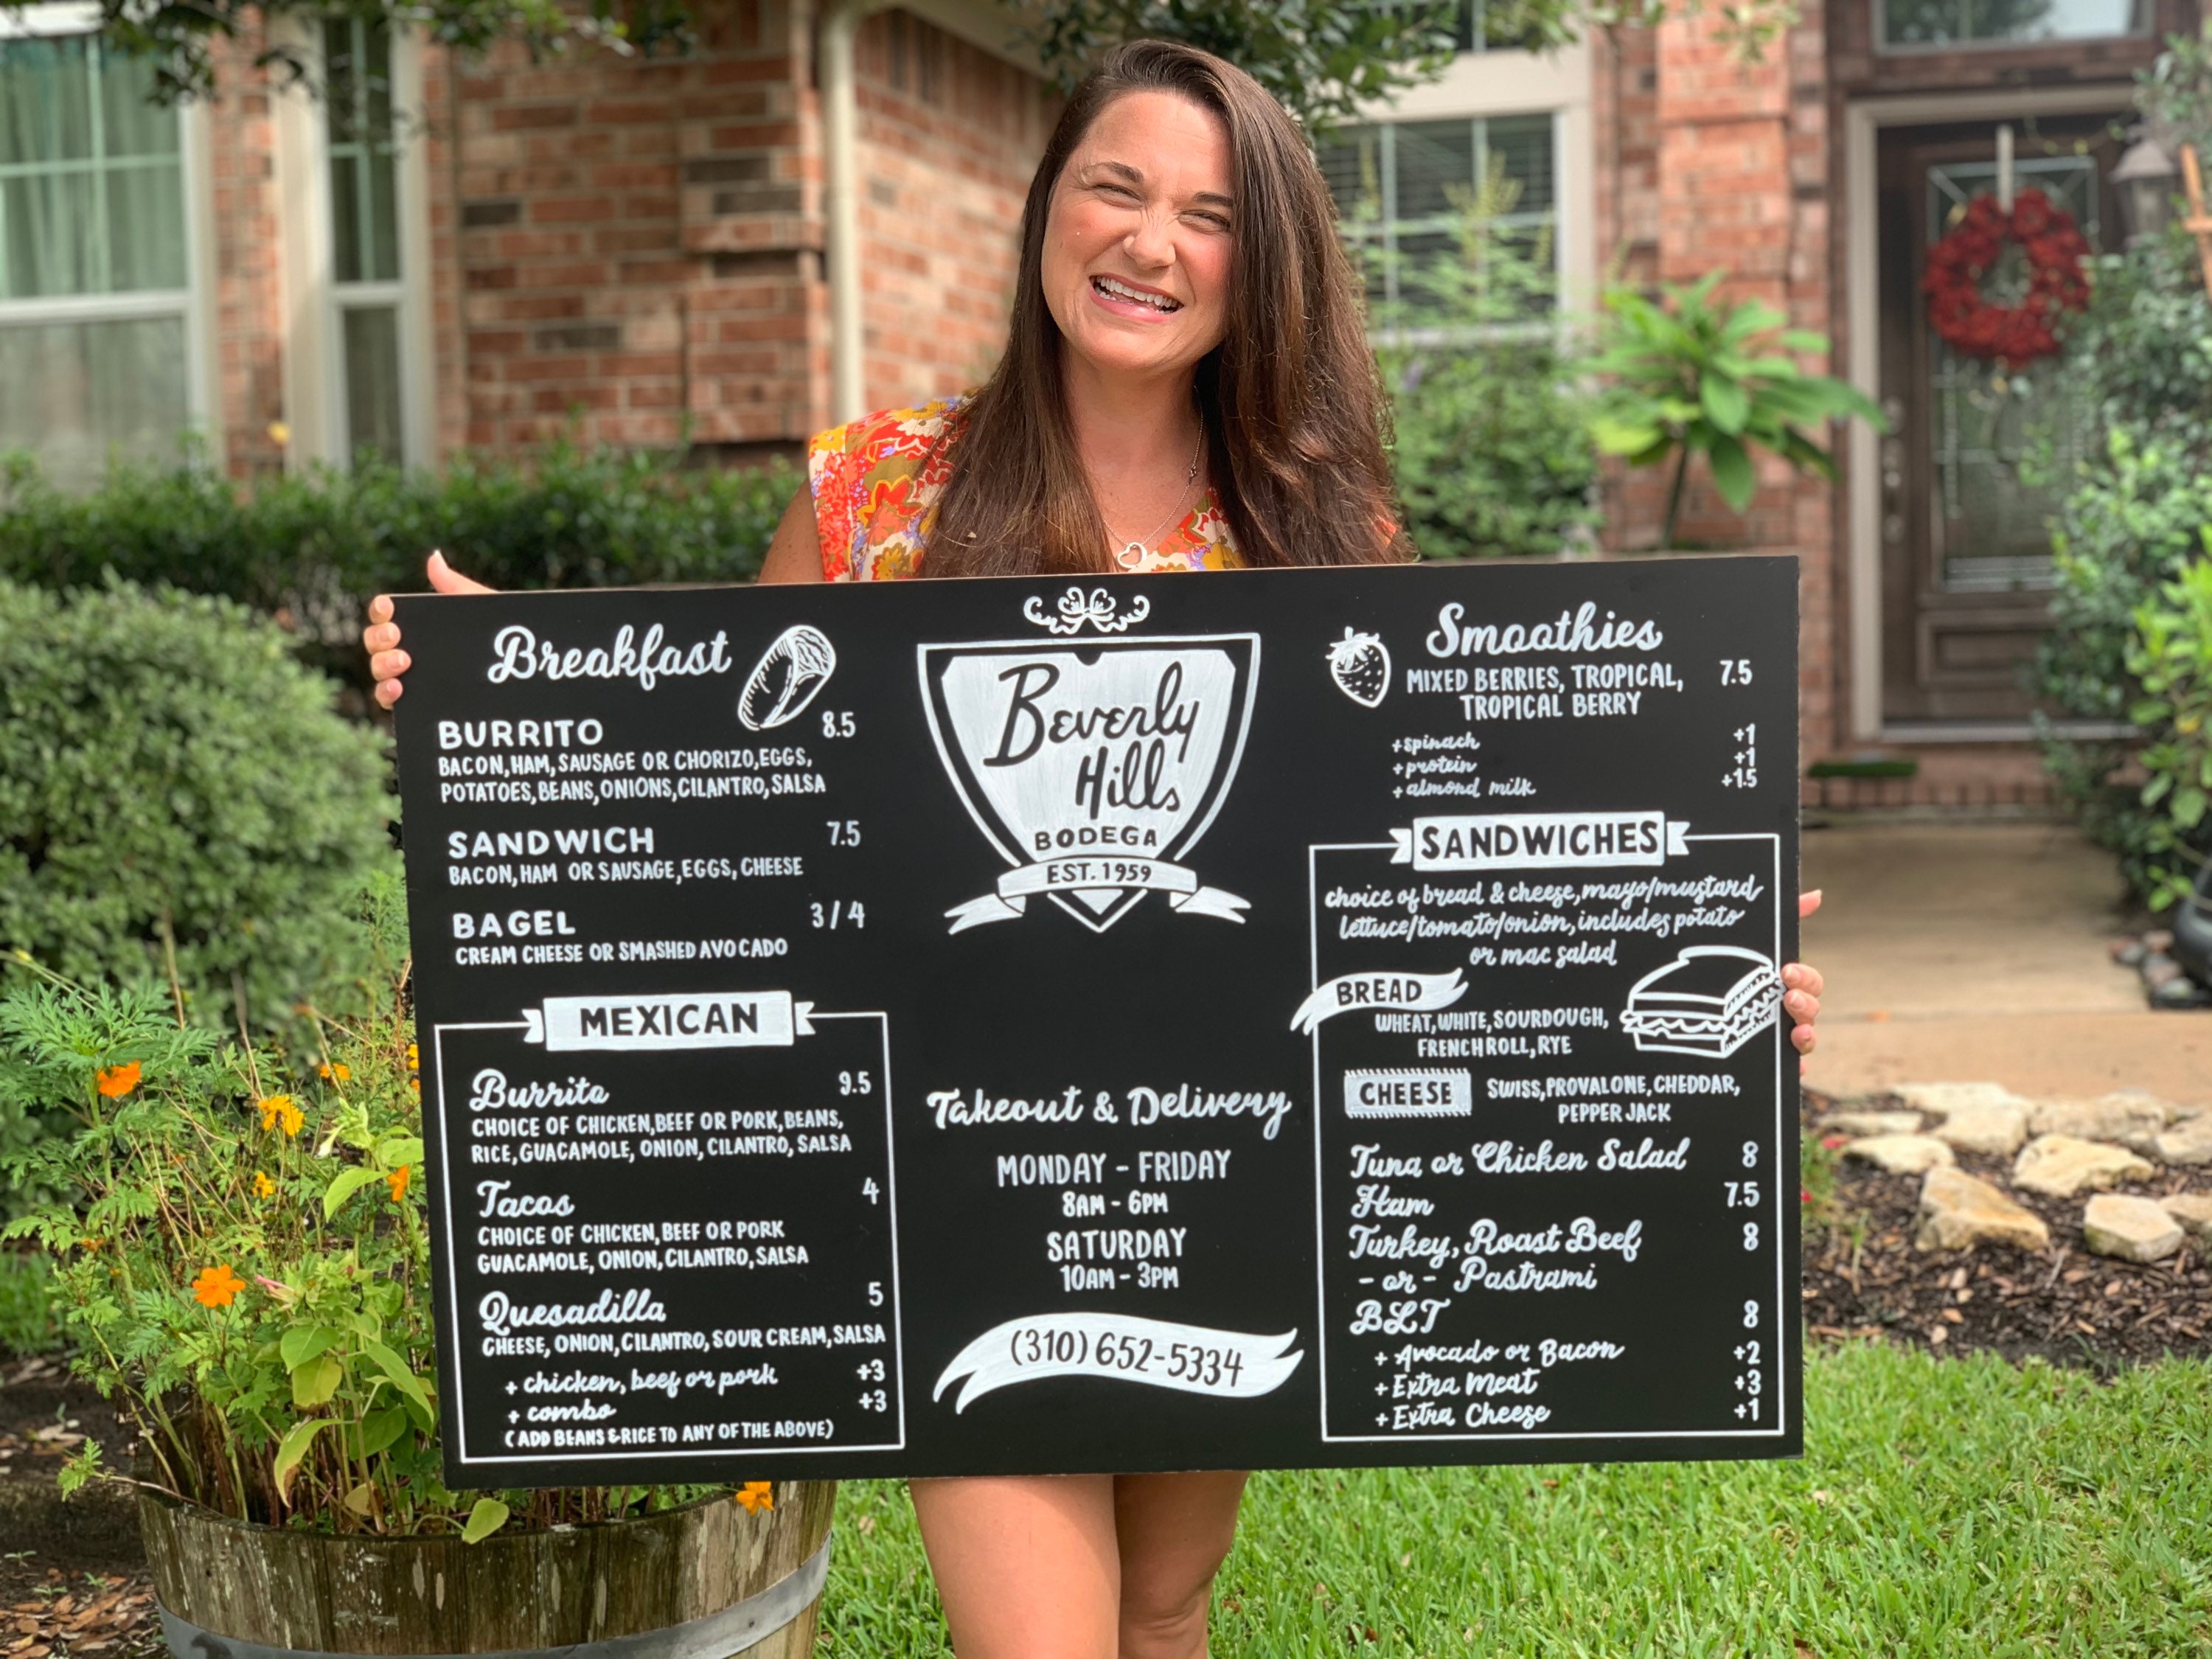 Breakfast
BURRITO 8.5
BACON, HAM, SAUSAGE OR CHORIZO, EGGS,
POTATOES, BEANS, ONIONS, CILANTRO, SALSA
SANDWICH 7.5
BACON, HAM OR SAUSAGE, EGGS, CHEESE
BAGEL 3/4
CREAM CHEESE OR SMASHED AVOCADO
MEXICAN
Burrito 9.5
CHOICE OF CHICKEN, BEEF OR PORK, BEANS,
RICE, GUACAMOLE, ONION, CILANTRO, SALSA
Tacos 4
CHOICE OF CHICKEN, BEEF OR PORK
GUACAMOLE, ONION, CILANTRO, SALSA
Quesadilla 5
CHEESE, ONION, CILANTRO, SOUR CREAM, SALSA
+ chicken, beef or pork +3
+ combo +3
(ADD BEANS & RICE TO ANY OF THE ABOVE)
Beverly
Hills
BODEGA
EST. 1959
Takeout & Delivery
MONDAY - FRIDAY
8AM - 6PM
SATURDAY
10AM - 3PM
(310) 652-5334
Smoothies
MIXED BERRIES, TROPICAL, 7.5
TROPICAL BERRY
+ spinach +1
+ protein +1
+ almond milk +1.5
SANDWICHES
choice of bread & cheese, mayo/mustard
lettuce/tomato/onion, includes potato
or mac salad
BREAD
WHEAT, WHITE, SOURDOUGH,
FRENCH ROLL, RYE
CHEESE SWISS, PROVALONE, CHEDDAR,
PEPPER JACK
Tuna or Chicken Salad 8
Ham 7.5
Turkey, Roast Beef 8
- or - Pastrami
BLT 8
+ Avocado or Bacon +2
+ Extra Meat +3
+ Extra Cheese +1